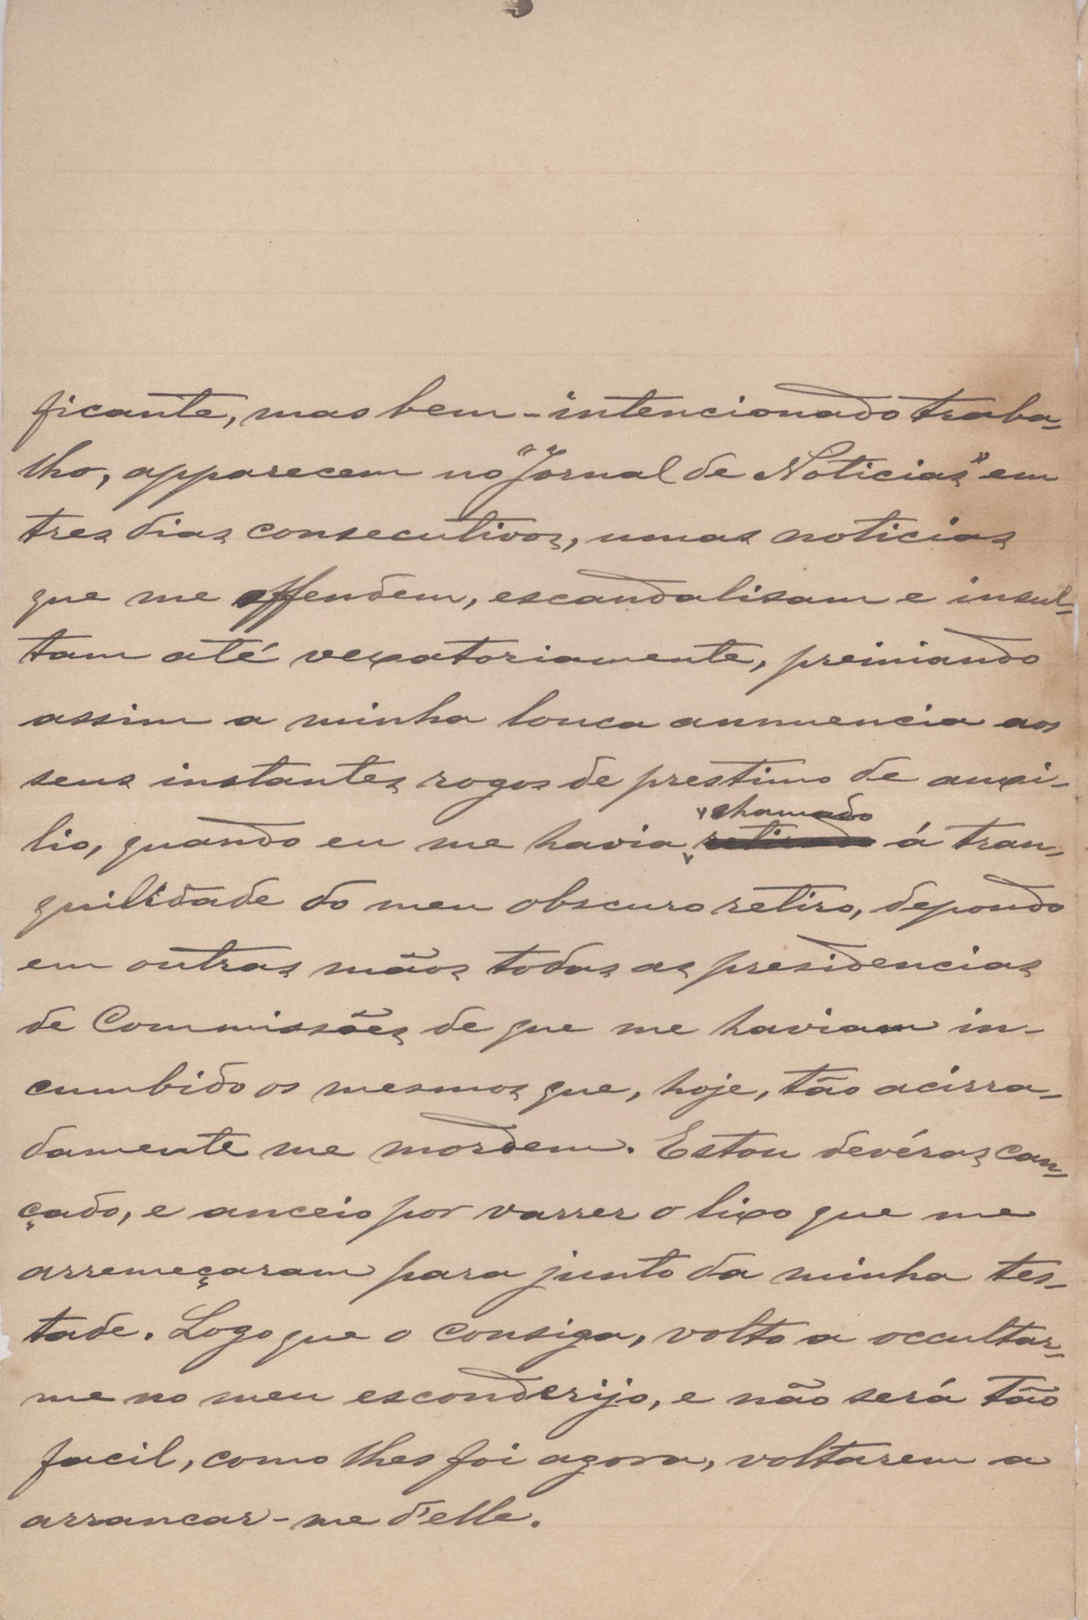 ficante, mas bem-intencionado traba-
lho, apparecem no "Jornal de Noticias" em
tres dias consecutivos, umas noticias
que me offendem, escandalisam e insul-
tam até vexatoriamente, premiando
assim a minha louca annuencia aos
seus instantes rogos de prestimo de auxi-
chamado
lio, quando eu me havia retirado á tran-
quilidade do meu obscuro retiro, depondo
em outras mãos todas as presidencias
de Commissões de que me haviam in-
cumbido os mesmos que, hoje, tão acirra-
damente me mordem. Estou devéras can-
çado, e anceio por varrer o lixo que me
arremeçaram para junto da minha tes-
tade. Logo que o consiga, volto a occultar-
me no meu esconderijo, e não será tão
facil, como lhes foi agora, voltarem a
arrancar-me d'elle.